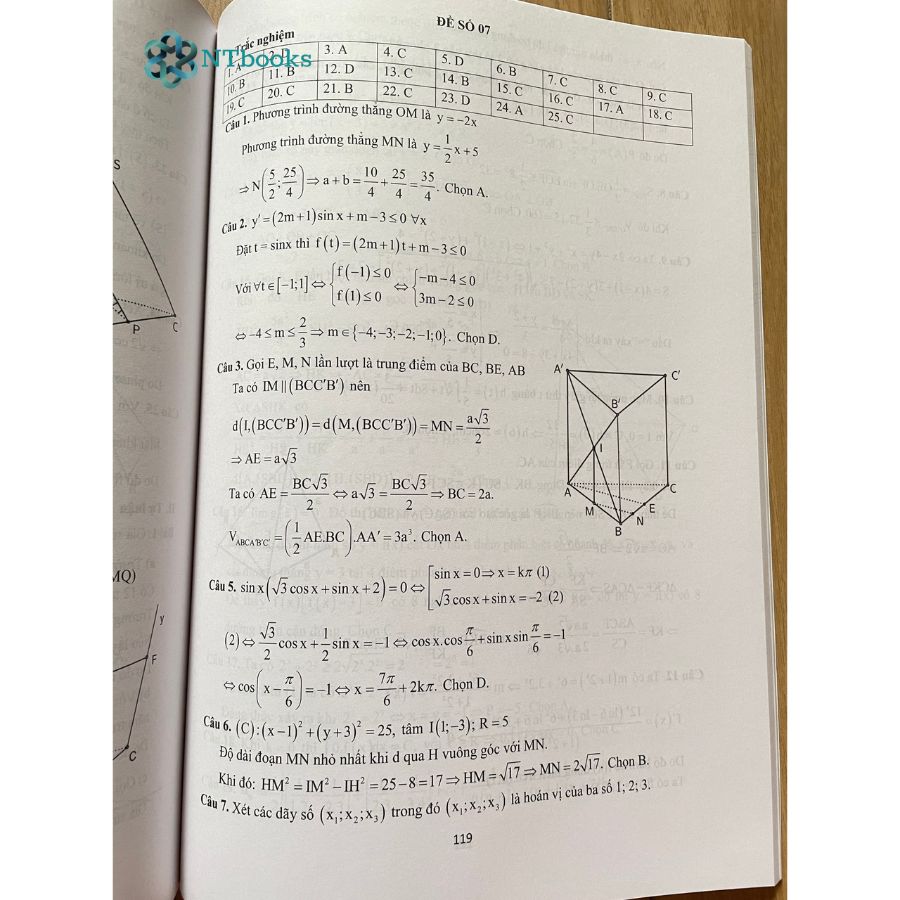 ĐỀ SỐ 07
NTbooks
Trắc nghiệm
1. A 3. A 4. C 5. D 6. B 7. C 8. C 9. C
10. B 11. B 12. D 13. C 14. B 15. C 16. C 17. A 18. C
19. C 20. C 21. B 22. C 23. D 24. A 25. C
Câu 1. Phương trình đường thẳng OM là y = −2x
Phương trình đường thẳng MN là y = 1/2 x + 5
⇒ N(5/2; 25/4) ⇒ a + b = 10/4 + 25/4 = 35/4. Chọn A.
Câu 2. y' = (2m+1)sin x + m − 3 ≤ 0 ∀x
Đặt t = sinx thì f(t) = (2m+1)t + m − 3 ≤ 0
Với ∀t ∈ [−1;1] ⇔ { f(−1) ≤ 0 ; f(1) ≤ 0 ⇔ { −m − 4 ≤ 0 ; 3m − 2 ≤ 0
⇔ −4 ≤ m ≤ 2/3 ⇒ m ∈ {−4; −3; −2; −1; 0}. Chọn D.
Câu 3. Gọi E, M, N lần lượt là trung điểm của BC, BE, AB
Ta có IM || (BCC'B') nên
d(I,(BCC'B')) = d(M,(BCC'B')) = MN = a√3/2
⇒ AE = a√3
Ta có AE = BC√3/2 ⇔ a√3 = BC√3/2 ⇒ BC = 2a.
V_ABCA'B'C' = (1/2 AE.BC).AA' = 3a³. Chọn A.
A'
C'
B'
I
A
C
M
E
N
B
Câu 5. sin x(√3 cos x + sin x + 2) = 0 ⇔ [ sin x = 0 ⇒ x = kπ (1)
√3 cos x + sin x = −2 (2)
(2) ⇔ √3/2 cos x + 1/2 sin x = −1 ⇔ cos x.cos π/6 + sin x sin π/6 = −1
⇔ cos(x − π/6) = −1 ⇔ x = 7π/6 + 2kπ. Chọn D.
Câu 6. (C): (x−1)² + (y+3)² = 25, tâm I(1;−3); R = 5
Độ dài đoạn MN nhỏ nhất khi d qua H vuông góc với MN.
Khi đó: HM² = IM² − IH² = 25 − 8 = 17 ⇒ HM = √17 ⇒ MN = 2√17. Chọn B.
Câu 7. Xét các dãy số (x₁; x₂; x₃) trong đó (x₁; x₂; x₃) là hoán vị của ba số 1; 2; 3.
119
S
P
C
MQ)
y
F
C